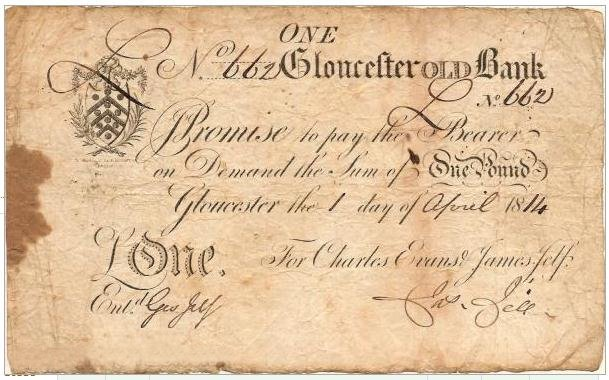 ONE
No. 662 Gloucester OLD Bank
No. 662
I Promise to pay the Bearer
on Demand the Sum of One Pound
Gloucester the 1 day of April 1814
£ One.
For Charles Evans & James Jelf.
Ent.d Geo Jelf
Jas. Jelf